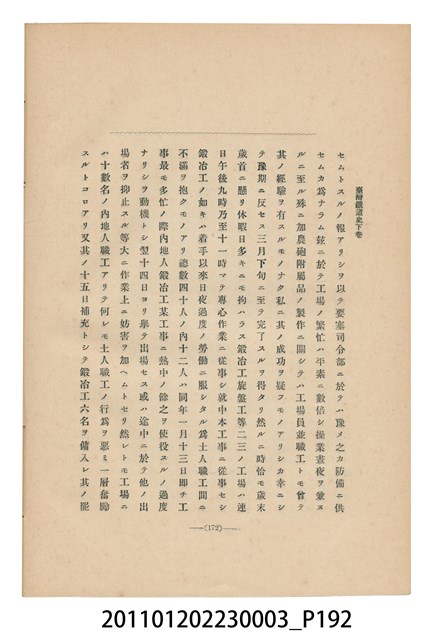 臺灣鐵道史下卷
セムトスルノ報アリシヲ以テ要塞司令部ニ於テハ豫メ之カ防備ニ供
セムカ爲ナラム玆ニ於テ工場ノ繁忙ハ平素ニ數倍シ操業晝夜ヲ兼ヌ
ルニ至ル殊ニ加農砲附屬品ノ製作ニ關シテハ工場員並職工トモ曾テ
其ノ經驗ヲ有スルモノナク私ニ其ノ成功ヲ疑フモノアリシカ幸ニシ
テ豫期ニ反セス三月下旬ニ至テ完了スルヲ得タリ然ルニ時恰モ歲末
歲首ニ懸リ休暇日多キニモ拘ハラス鍛冶工旋盤工等二三ノ工場ハ連
日午後九時乃至十一時マテ專心作業ニ從事シ就中本工事ニ從事セシ
鍛冶工ノ如キハ着手以來日夜過度ノ勞働ニ服シタル爲土人職工間ニ
不滿ヲ抱クモノアリ總數四十人ノ內十二人ハ同年一月十三日卽チ工
事最モ多忙ノ際內地人鍛冶工某工事ニ熱中ノ餘之ヲ使役スルノ過度
ナリシヲ動機トシ翌十四日ヨリ擧テ出場セス或ハ途中ニ於テ他ノ出
場者ヲ抑止スル等大ニ作業上ニ妨害ヲ加ヘムトセリ然レトモ工場ニ
ハ十數名ノ內地人職工アリテ何レモ土人職工ノ行爲ヲ惡ミ一層奮勵
スルトコロアリ又其ノ十五日補充トシテ鍛冶工六名ヲ傭入レ其ノ罷
(172)
201101202230003_P192